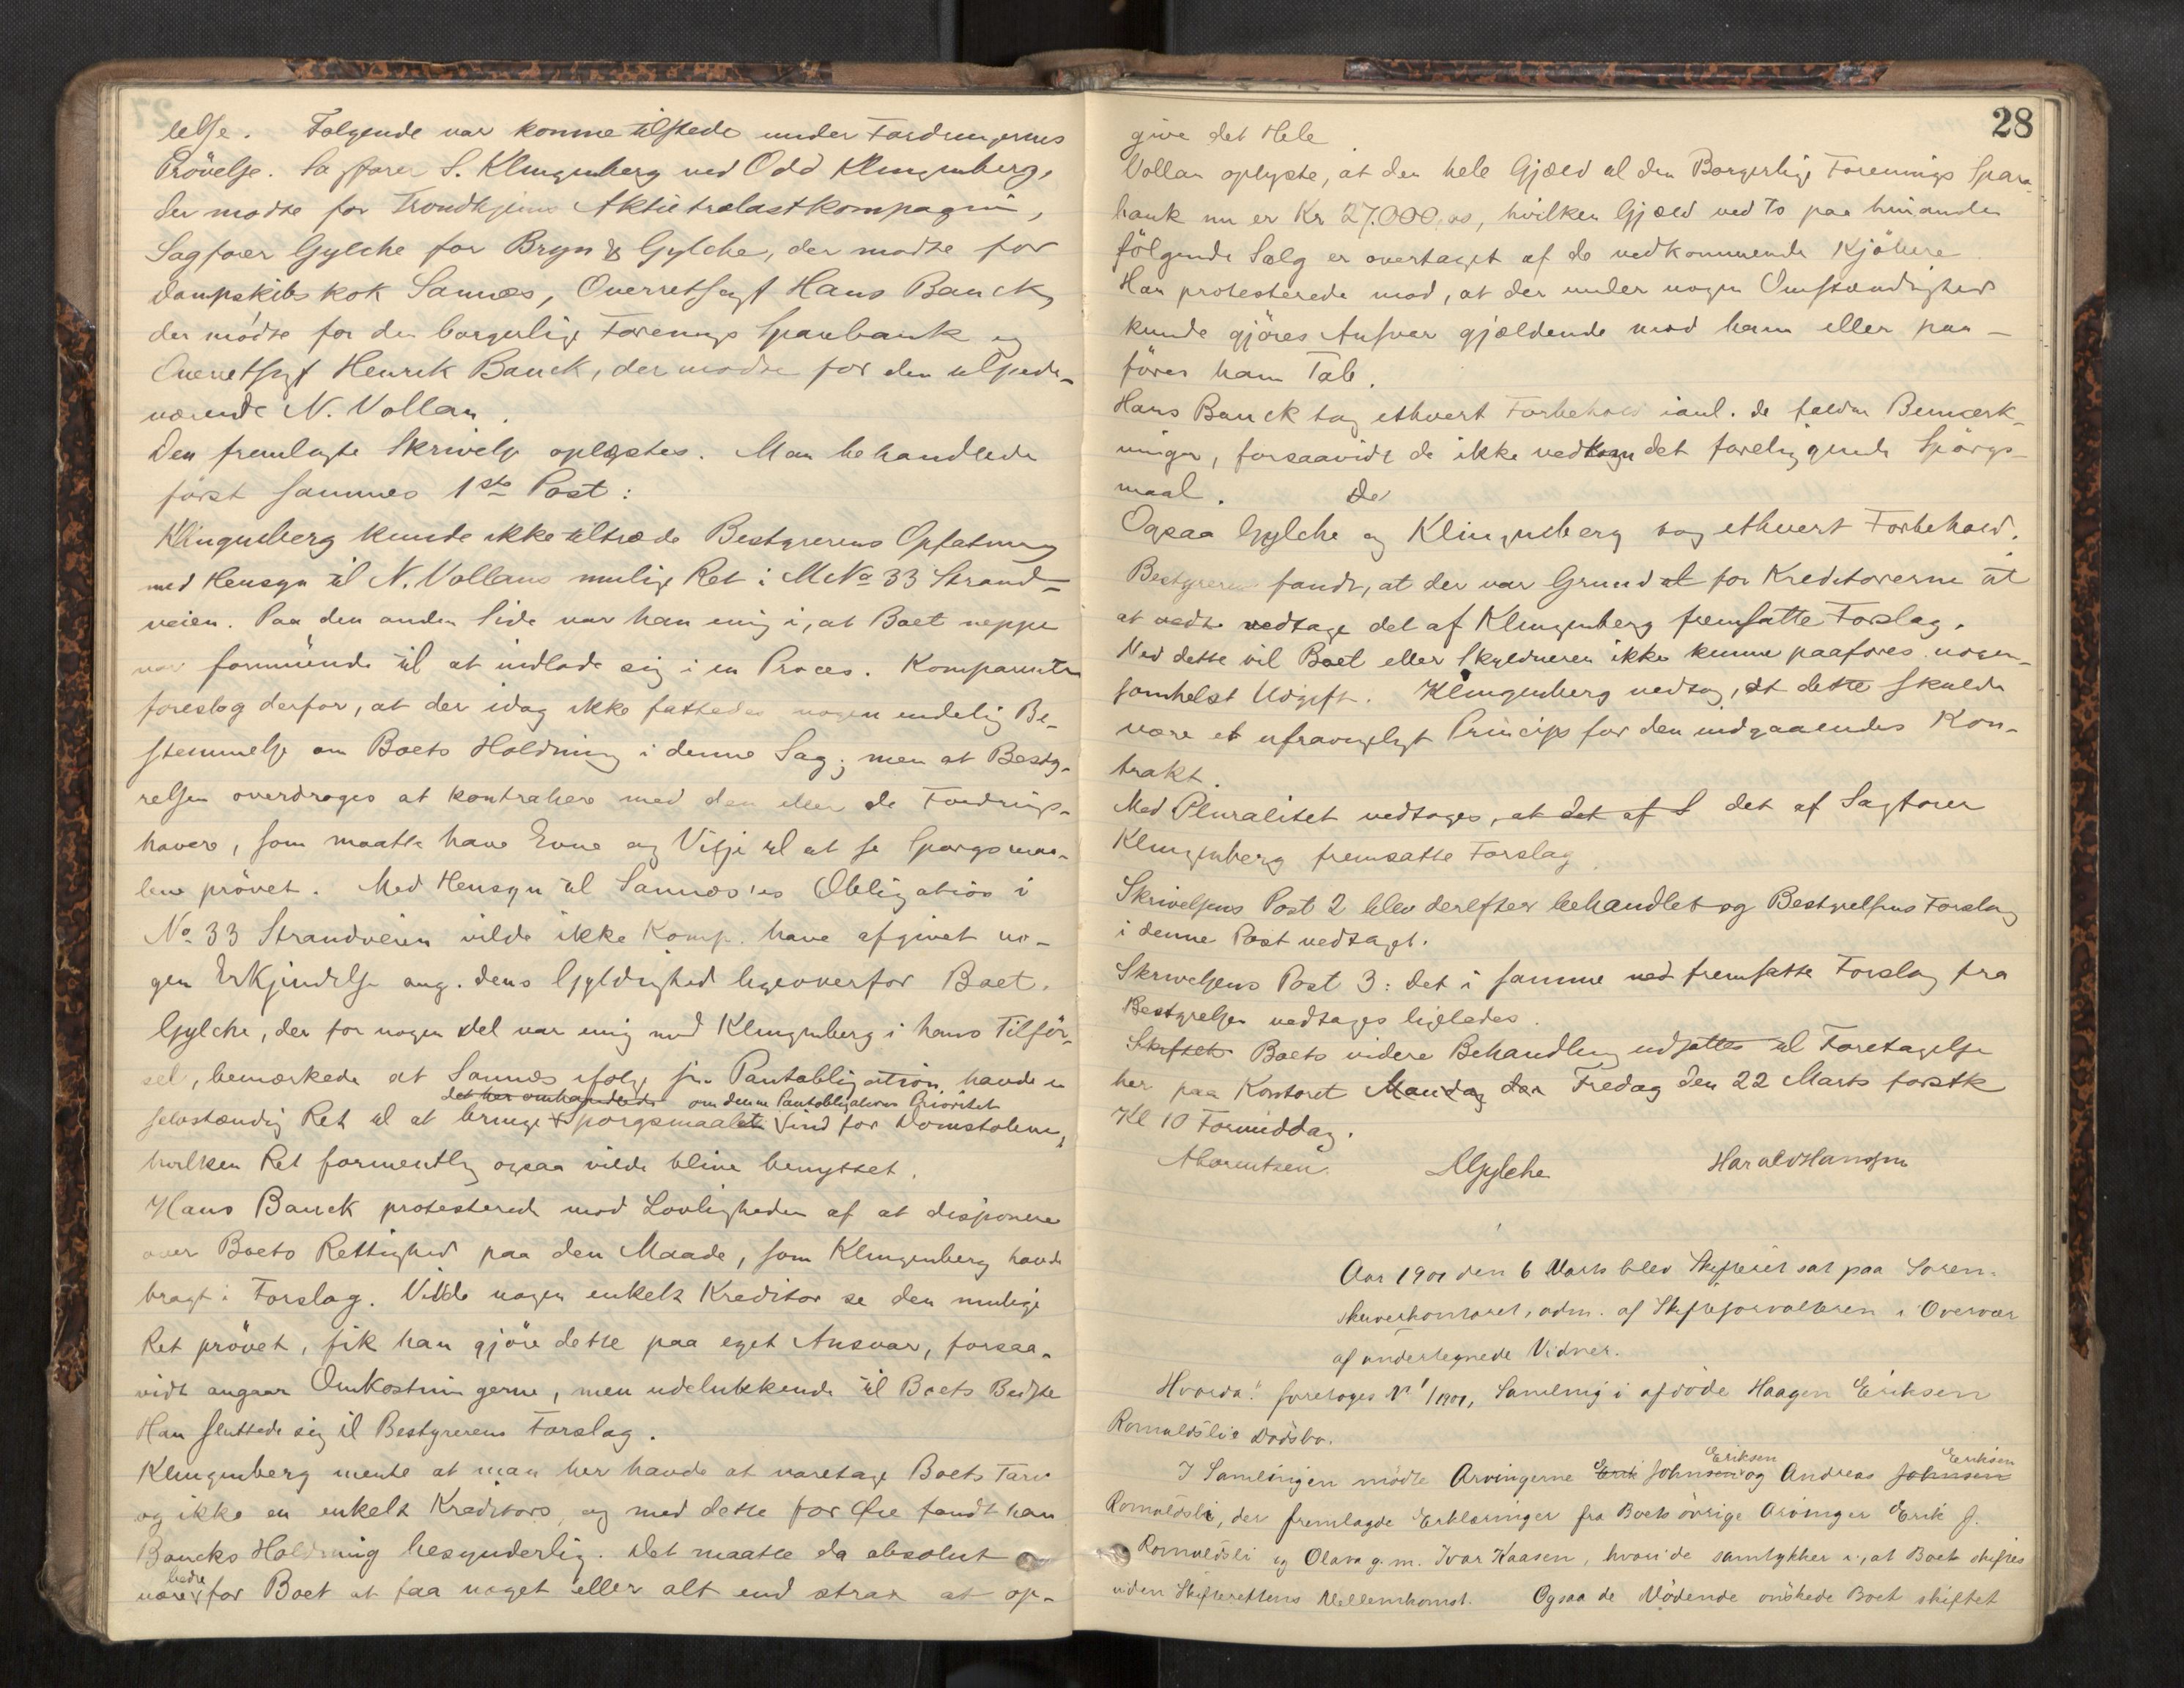 lelse. Følgende var komne tilstede under Fordringernes
Prövelse. Sagfører S. Klingenberg ved Odd Klingenberg,
der mødte for Trondhjems Aktietrælastkompagni,
Sagfører Gylche for Bryn & Gylche, der mødte for
Dampskibskok Sannæs, Overretssagf Hans Bauck,
der mödte for den borgerlige Forenings Sparebank og
Overretssagf Henrik Bauck, der mødte for den tilstede-
værende N. Vollan.
Den fremlagte Skrivelse oplæstes. Man behandlede
först sammes 1ste Post:
Klingenberg kunde ikke tiltræde Bestyrerens Opfatning
med Hensyn til N. Vollans mulige Ret i MNo 33 Strand-
veien. Paa den anden Side var han enig i, at Boet neppe
var formuende til at indlade sig i en Proces. Komparenten
foreslog derfor, at der idag ikke fattedes nogen endelig Be-
stemmelse om Boets Holdning i denne Sag; men at Besty-
relsen overdroges at kontrahere med den eller de Fordrings-
havere, som maatte have Evne og Vilje til at se Spørgsmaa-
lene prövet. Med Hensyn til Sannæs'es Obligation i
No 33 Strandveien vilde ikke Komp. have afgivet no-
gen Erkjendelse ang. dens Gyldighed ligeoverfor Boet.
Gylche, der for nogen Del var enig med Klingenberg i hans Tilför-
sel, bemærkede at Sannæs ifølge sin Pantobligation havde en
det her omhandlede om denne Pantobligations Prioritet
selvstændig Ret til at bringe Spørgsmaalet ind for Domstolene,
hvilken Ret formentlig ogsaa vilde blive benyttet.
Hans Bauck protesterede mod Lovligheden af at disponere
over Boets Rettighed paa den Maade, som Klingenberg havde
bragt i Forslag. Vilde nogen enkelt Kreditor se den mulige
Ret prövet, fik han gjöre dette paa eget Ansvar, forsaa-
vidt angaar Omkostningerne, men udelukkende til Boets Bedste
Han sluttede sig til Bestyrerens Forslag.
Klingenberg mente at man her havde at varetage Boets Tarv
og ikke en enkelt Kreditors, og med dette for Øie fandt han
Baucks Holdning besynderlig. Det maatte da absolut
bedre
være for Boet at faa noget eller alt end strax at op-
28
give det Hele
Vollan oplyste, at den hele Gjæld til den Borgerlige Forenings Spare-
bank nu er Kr 27.000,00, hvilken Gjæld ved to paa hinanden
fölgende Salg er overtaget af de vedkommende Kjöbere
Han protesterede mod, at der under nogen Omstændighed
kunde gjöres Ansvar gjældende mod ham eller paa-
föres ham Tab.
Hans Bauck tog ethvert Forbehold i anl. de faldne Bemærk-
ninger, forsaavidt de ikke vedkom det foreliggende Spörgs-
maal. De
Ogsaa Gylche og Klingenberg tog ethvert Forbehold.
Bestyreren fandt, at der var Grund at for Kreditorerne til
at vedta vedtage det af Klingenberg fremsatte Forslag.
Ved dette vil Boet eller Skyldneren ikke kunne paaføres nogen-
somhelst Udgift. Klingenberg vedtog, at dette skulde
være et ufravigeligt Princip for den indgaaendes Kon-
trakt.
Med Pluralitet vedtoges, at det af S det af Sagfører
Klingenberg fremsatte Forslag.
Skrivelsens Post 2 blev derefter behandlet og Bestyrelsens Forslag
i denne Post vedtaget.
Skrivelsens Post 3: det i samme ved fremsatte Forslag fra
Bestyrelsen vedtages ligeledes.
Skiftet Boets videre Behandling udsattes til Foretagelse
her paa Kontoret Mandag den Fredag den 22 Marts førstk
Kl 10 Formiddag.
ALorentzen. AGylche Harald Hansen
Aar 1901 den 6 Marts blev Skifteret sat paa Soren-
skriverkontoret, adm. af Skifteforvalteren i Overvær
af undertegnede Vidner.
Hvorda: foretoges No 1/1901, Samling i afdöde Haagen Eriksen
Romuldslis Dödsbo.
Eriksen Eriksen
I Samlingen mödte Arvingerne Erik Johnsen og Andreas Johnsen
Romuldsli, der fremlagde Erklæringer fra Boets övrige Arvinger Erik J.
Romuldsli og Olava g. m. Ivar Haasen, hvori de samtykker i, at Boet skiftes
uden Skifterettens Mellemkomst. Ogsaa de Mödende önskede Boet skiftet